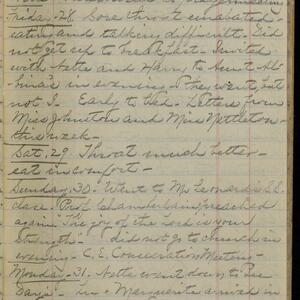 Friday - 28 Sore throat
eating and talking difficult - Did
not get up to breakfast. Invited
with Nette and Harry to Aunt Al-
bina's in evening - They went but
not I - Early to bed - Letters from
Miss Johnston and Miss Nettleton -
this week -
Sat. 29 Throat much better -
eat in comfort -
Sunday 30 - Went to Mr Leonard's S.S.
class. Prof. Chamberlain preached
again "The joy of the Lord is your
Strength" - I did not go to church in
evening - C.E. Consecration Meeting -
Monday - 31. Nette went down to
Marguerite arrived in